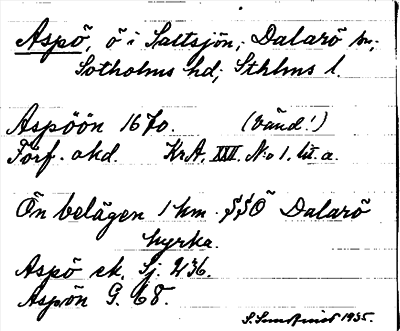 Aspö, ö i Saltsjön, Dalarö sn,
Sotholms hd, Sthlms l.
Aspöön 1670. (Vänd!)
Förf. okd. KrA. XVI. No 1. lit. a.
Ön belägen 1 km. SSÖ Dalarö
kyrka.
Aspö ek. Sj. 236.
Aspön G. 68.
S. Sundqvist 1935.